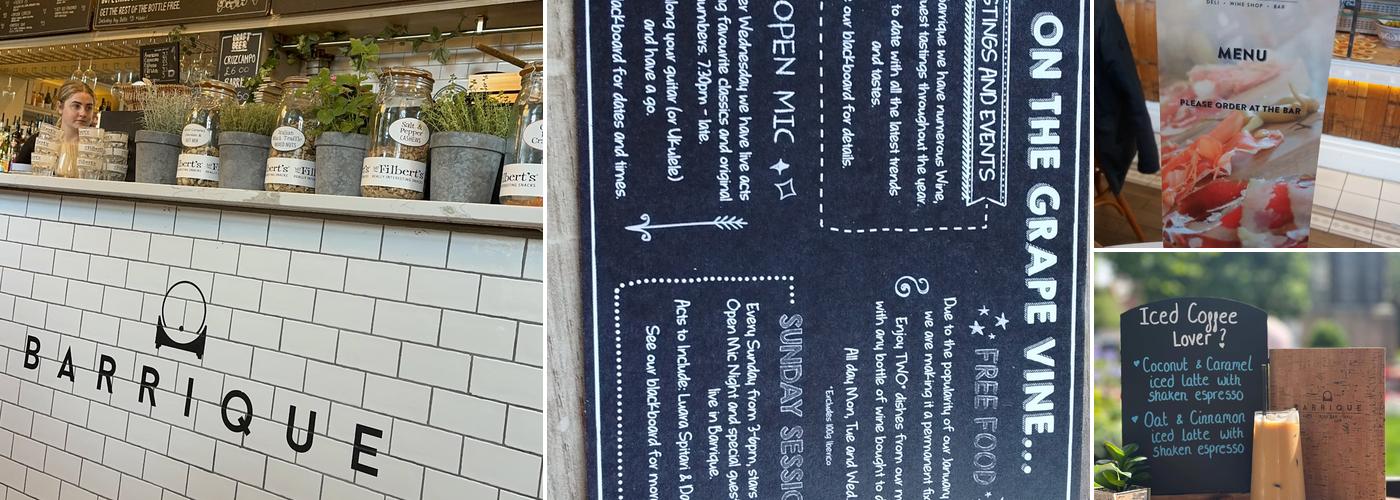 GET THE REST OF THE BOTTLE FREE.
DRAFT
BEER
CRUZCAMPO
£6.00
Salt &
Pepper
CASHEWS
Filbert's
BARRIQUE
ON THE GRAPE VINE...
TINGS AND EVENTS
arrique we have numerous Wine,
uest tastings throughout the year.
to date with all the latest trends
and tastes.
our blackboard for details
OPEN MIC
er Wednesday we have live acts
ng favourite classics and original
umbers. 7.30pm - late.
long your guitar (or Uk-ulele)
and have a go.
lackboard for dates and times.
FREE FOOD
Due to the popularity of our January
we are making it a permanent
Enjoy TWO* dishes from our
with any bottle of wine bought
All day Mon, Tue and Wed.
*Excludes 100g Iberico
SUNDAY SESSIO
Every Sunday from 3-6pm, stars
Open Mic Night and special gues
live in Barrique.
Acts to include: Luara Spitari &
See our blackboard for mor
DELI • WINE SHOP • BAR
MENU
PLEASE ORDER AT THE BAR
Iced Coffee
Lover?
Coconut & Caramel
iced latte with
shaken espresso
Oat & Cinnamon
iced latte with
shaken espresso
BARRIQUE